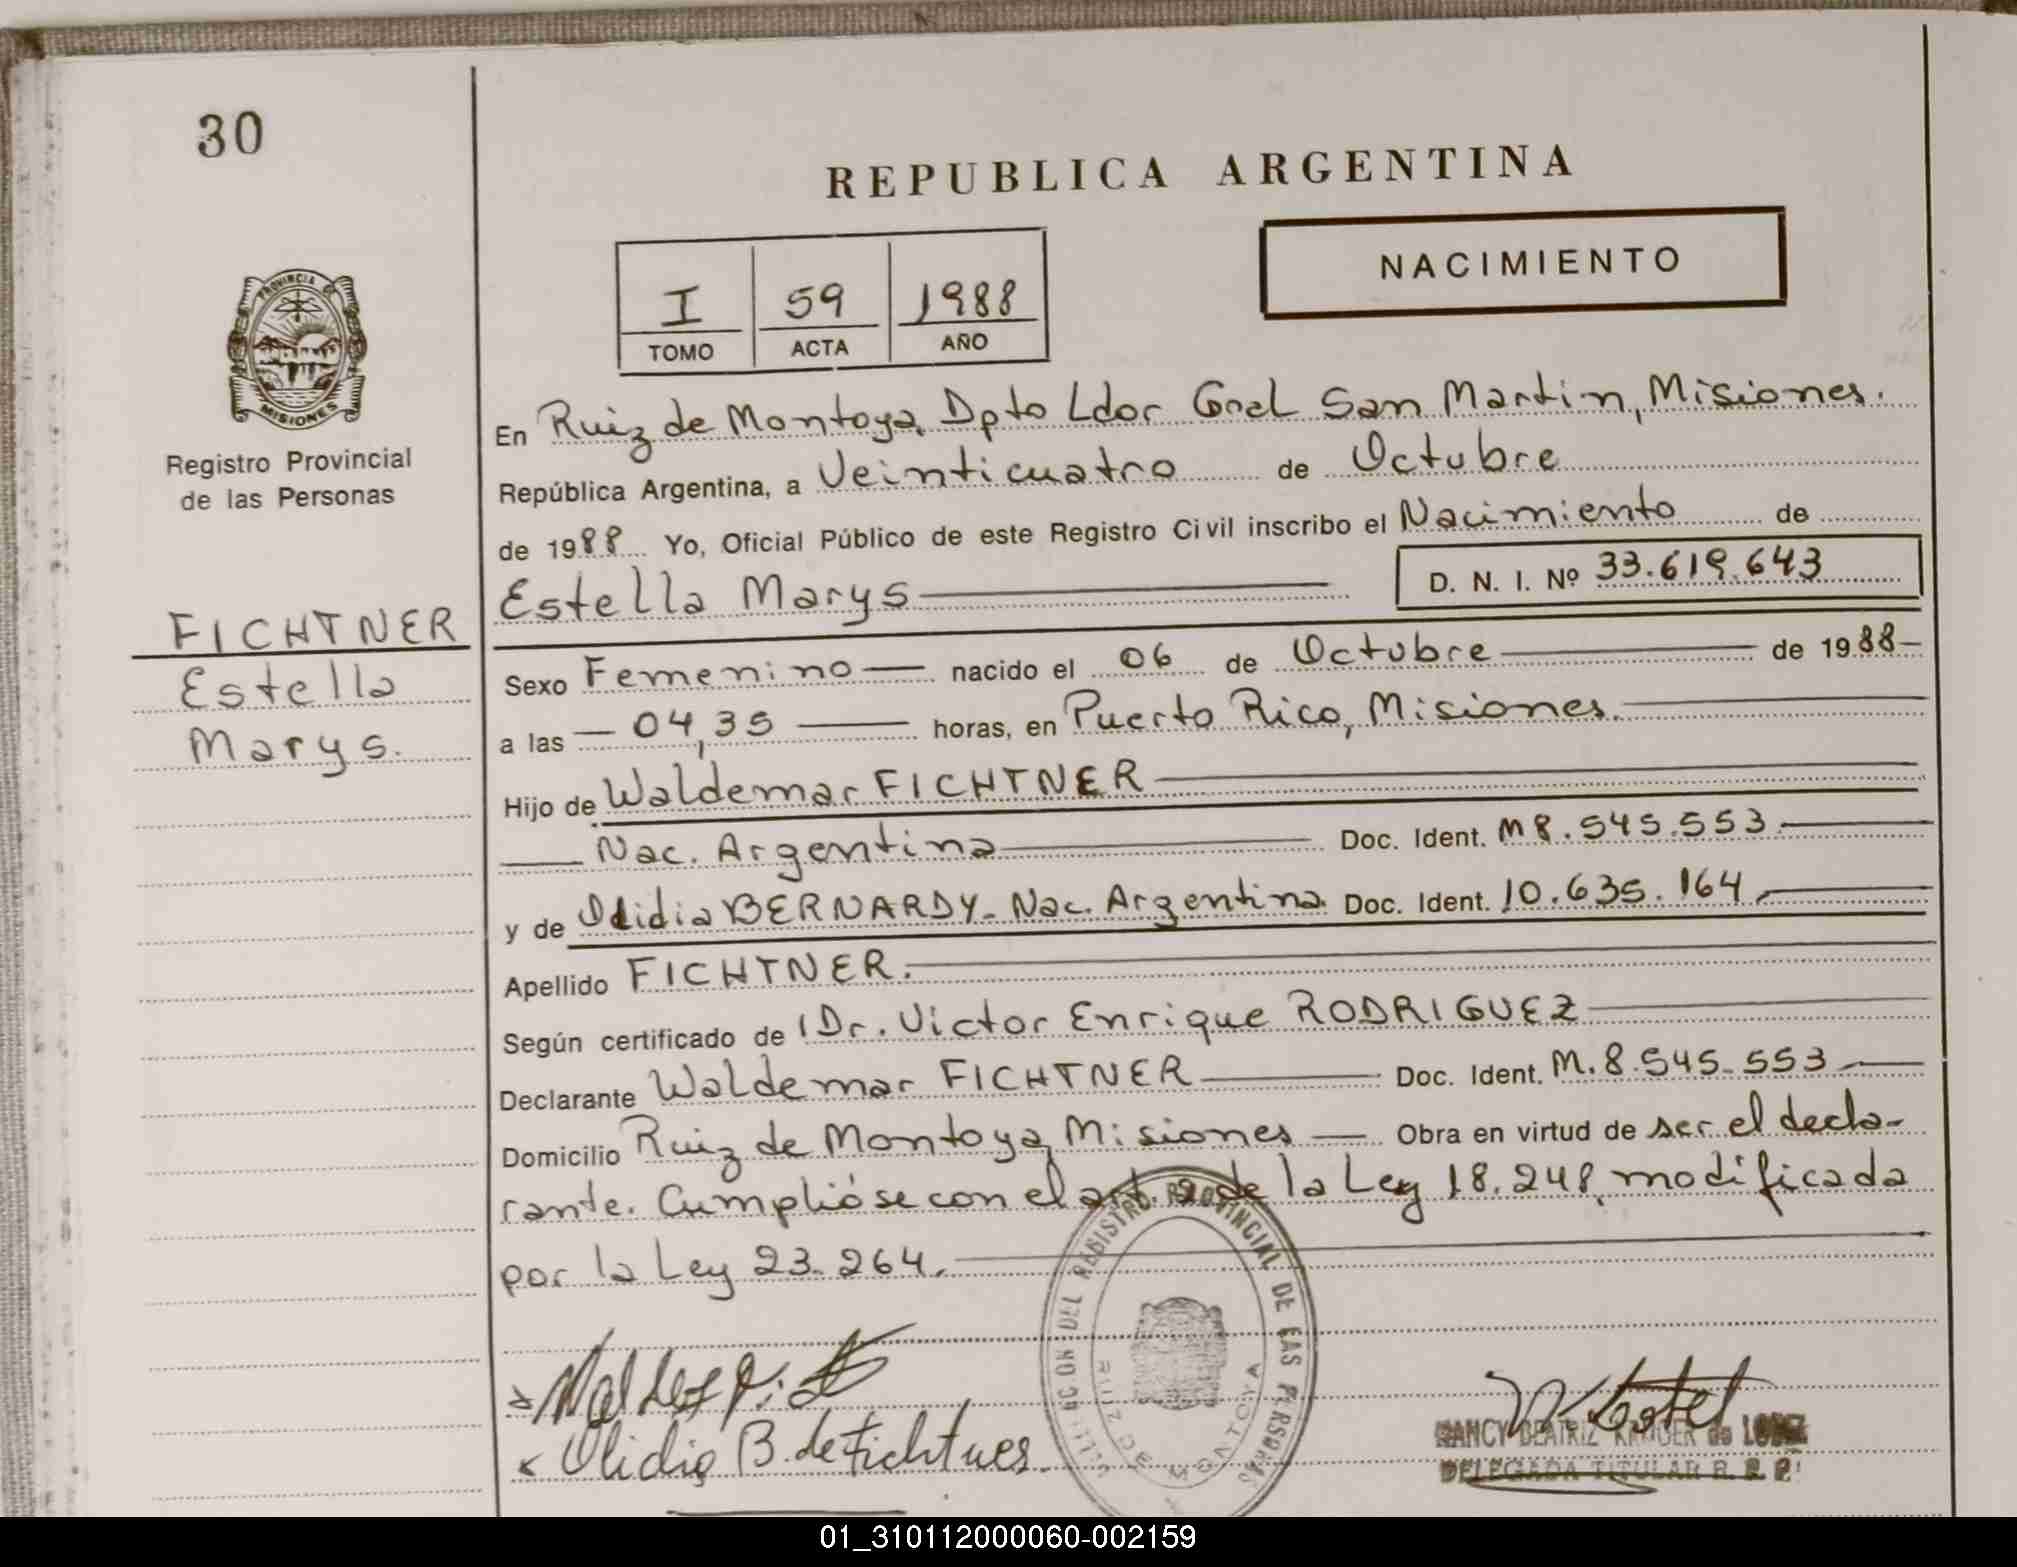 30
REPUBLICA ARGENTINA
NACIMIENTO
I 59 1988
TOMO ACTA AÑO
PROVINCIA DE
MISIONES
Registro Provincial
de las Personas
FICHTNER
Estella
Marys.
En Ruiz de Montoya, Dpto Ldor Gral San Martin, Misiones.
República Argentina, a Veinticuatro de Octubre
de 1988 Yo, Oficial Público de este Registro Civil inscribo el Nacimiento de
Estella Marys D. N. I. Nº 33.619.643
Sexo Femenino nacido el 06 de Octubre de 1988
a las 04,35 horas, en Puerto Rico, Misiones.
Hijo de Waldemar FICHTNER
Nac. Argentina Doc. Ident. M 8.545.553
y de Olidia BERNARDY. Nac. Argentina. Doc. Ident. 10.635.164
Apellido FICHTNER.
Según certificado de Dr. Victor Enrique RODRIGUEZ
Declarante Waldemar FICHTNER Doc. Ident. M. 8.545.553
Domicilio Ruiz de Montoya, Misiones Obra en virtud de ser el decla-
rante. Cumplióse con el art. 2 de la Ley 18.248, modificada
por la Ley 23.264.
DEL REGISTRO PROVINCIAL DE LAS PERSONAS
RUIZ DE MONTOYA
Olidia B. de Fichtner
NANCY BEATRIZ KRUGER de LOPEZ
DELEGADA TITULAR R. P. P.
01_310112000060-002159